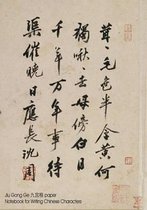 茸々毛色半含黃何
獨啾々去母傍白日
千年萬年事待
渠催曉日應長沈周
Jiu Gong Ge 九宫格 paper
Notebook for Writing Chinese Characters